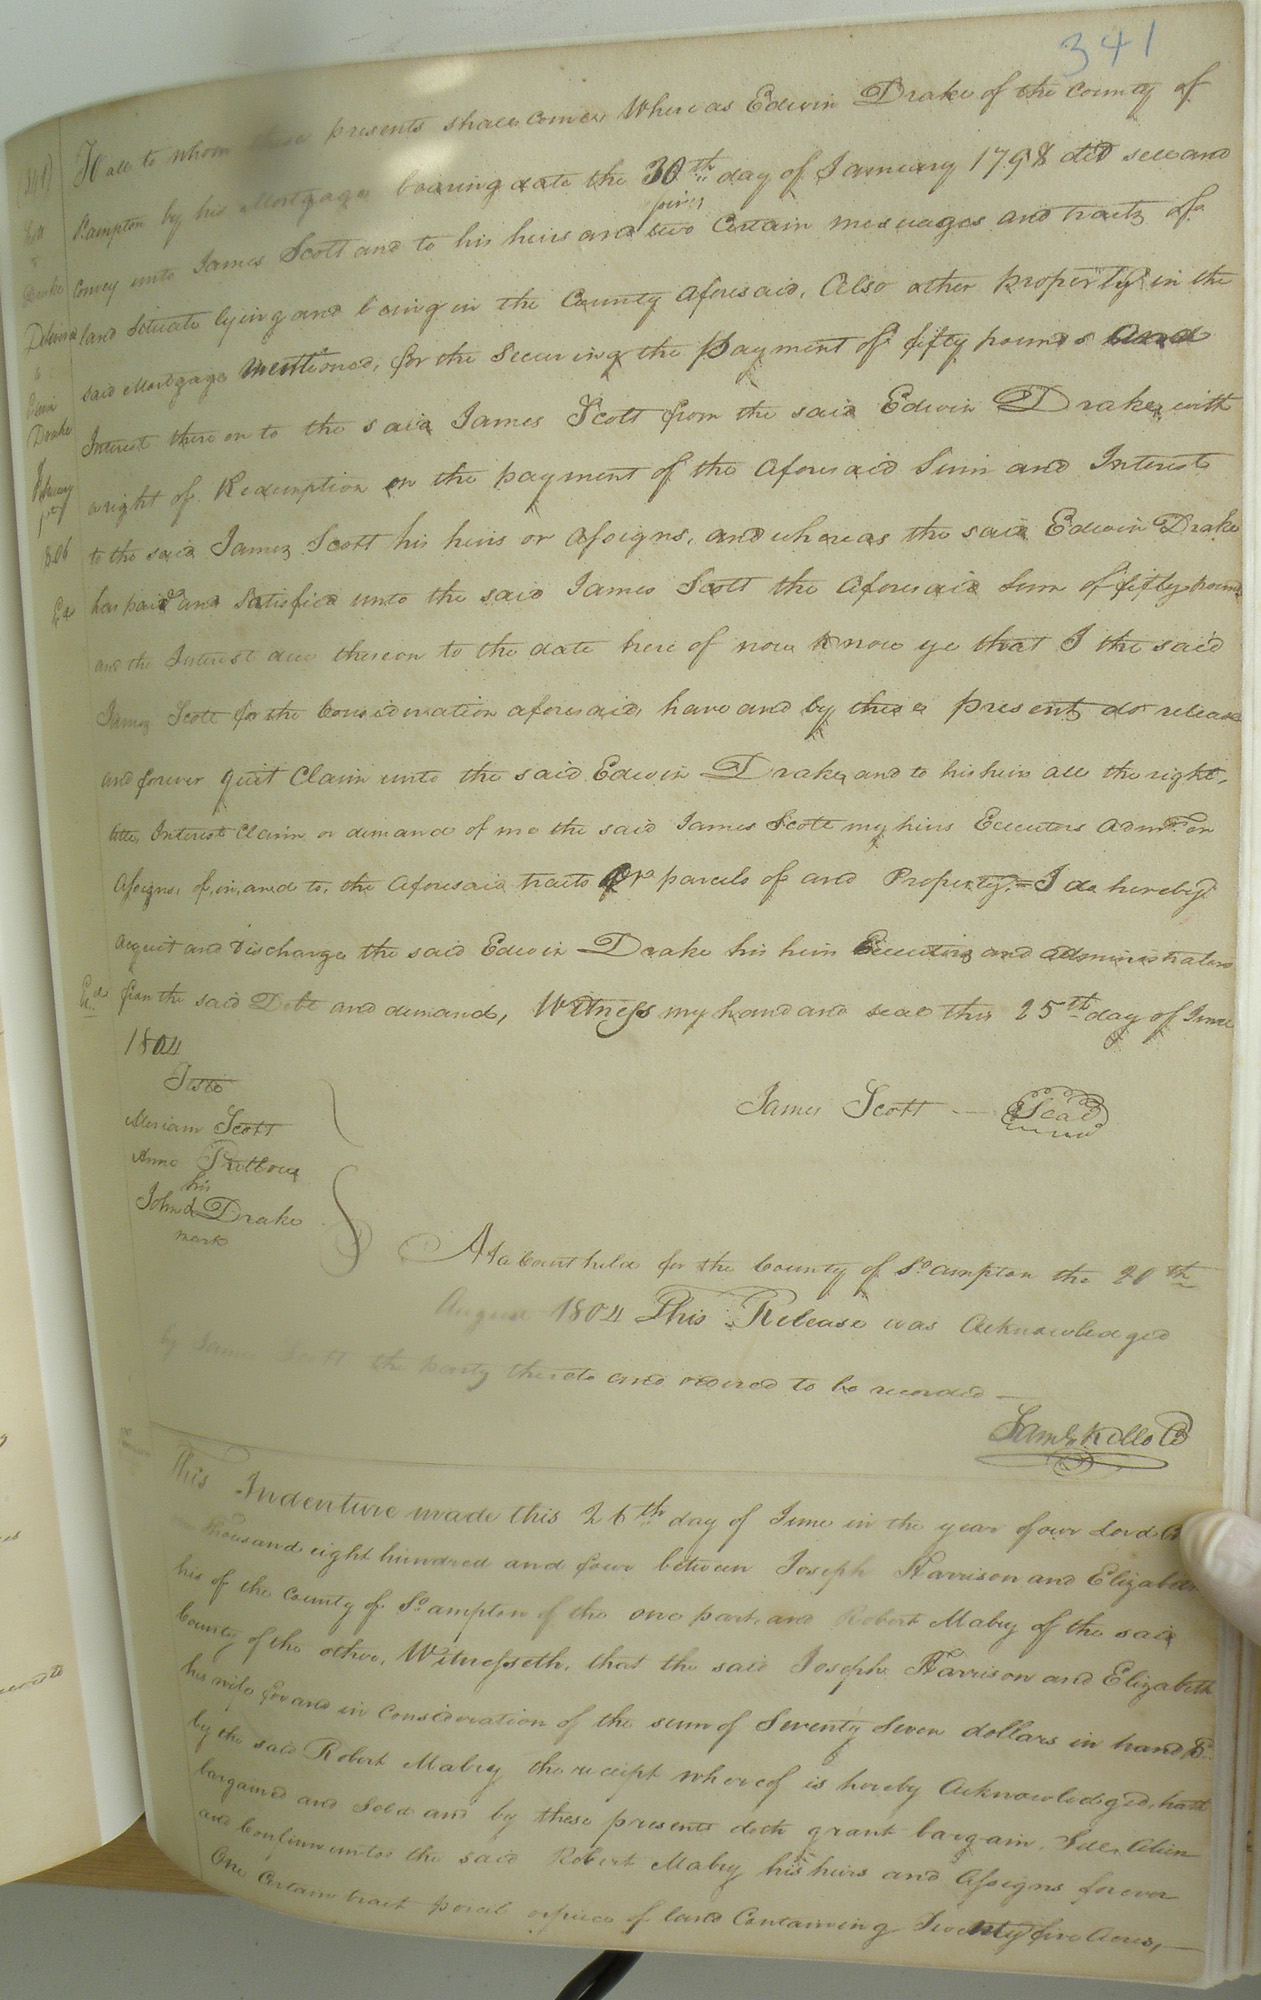 341
(341)
Scott
to
Drake
Delivered
to
Edwin
Drake
February
1st
1806
Ex
To all to whom these presents shall come Whereas Edwin Drake of the County of
S.ampton by his Mortgage bearing date the 30th day of January 1798 did sell and
convey unto James Scott and to his heirs and two Certain messuages and tracts of
land Situate lying and being in the County aforesaid, Also other property in the
said Mortgage mentioned, for the Securing the payment of fifty pounds and
Interest there on to the said James Scott from the said Edwin Drake, with
a right of Redemption on the payment of the aforesaid Sum and Interest
to the said James Scott his heirs or Assigns, and whereas the said Edwin Drake
has paid and Satisfied unto the said James Scott the aforesaid Sum of fifty pounds
and the Interest due thereon to the date here of now Know ye that I the said
James Scott for the Consideration aforesaid, have and by these presents do release
and forever quit Claim unto the said Edwin Drake, and to his heirs all the right,
title, Interest Claim or demand of me the said James Scott my heirs Executors Admrs. or
Assigns, of, in, and to, the aforesaid tracts or parcels of and Property, = I do hereby
acquit and discharge the said Edwin Drake his heirs Executors and administrators
Exd. from the said Debt and demand, Witness my hand and seal this 25th day of June
1804
Teste
Meriam Scott
Anne Pretlow
his
John d Drake
mark
James Scott — Seal
At a Court held for the County of So.ampton the 20th
August 1804 This Release was Acknowledged
by James Scott the party thereto and ordered to be recorded —
Saml. Kello C
This Indenture made this 26th day of June in the year of our Lord
one thousand eight hundred and four between Joseph Harrison and Elizabeth
his of the County of So.ampton of the one part, and Robert Mabry of the said
County of the other, Witnesseth, that the said Joseph Harrison and Elizabeth
his wife for and in Consideration of the sum of Seventy Seven dollars in hand
by the said Robert Mabry the receipt whereof is hereby Acknowledged, hath
bargained and Sold and by these presents doth grant bargain, Sell, Alien
and Confirm unto the said Robert Mabry his heirs and Assigns forever
One Certain tract parcel or piece of land Containing Twenty five Acres, —